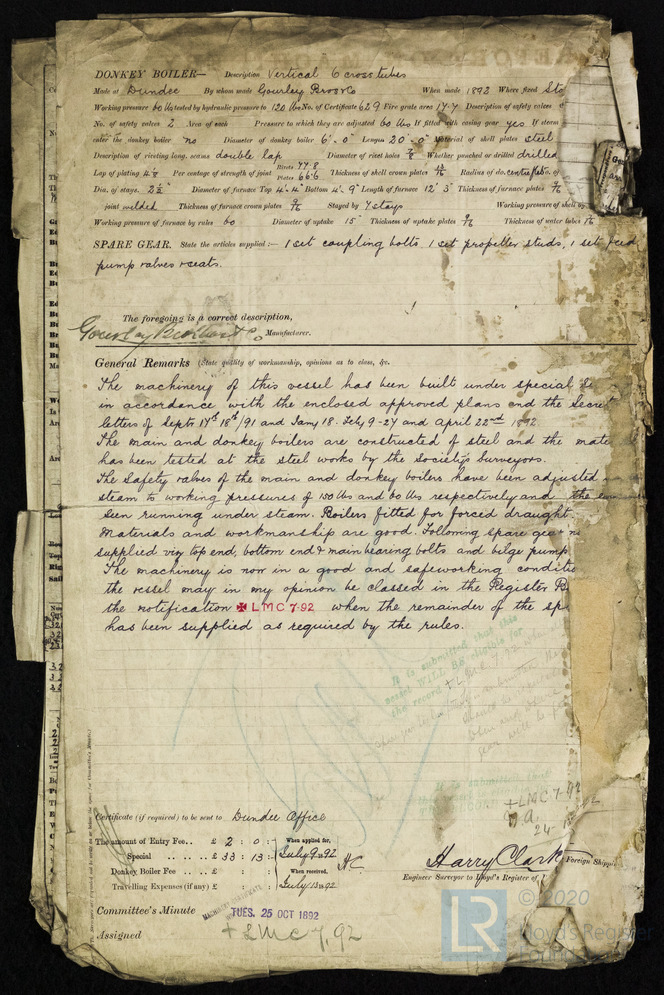 DONKEY BOILER— Description Vertical 6 cross tubes
Made at Dundee By whom made Gourley Bros & Co When made 1892 Where fixed Sto
Working pressure 60 lbs tested by hydraulic pressure to 120 lbs No. of Certificate 629 Fire grate area 17.7 Description of safety valves
No. of safety valves 2 Area of each Pressure to which they are adjusted 60 lbs If fitted with easing gear yes If steam
enter the donkey boiler no Diameter of donkey boiler 6'. 0" Length 20'. 0" Material of shell plates steel
Description of riveting long. seams double lap Diameter of rivet holes 7/8 Whether punched or drilled drilled
Lap of plating 4 1/2 Per centage of strength of joint Rivets 77.8 Plates 66.6 Thickness of shell crown plates Radius of do. No. of
Dia. of stays. 2 1/2" Diameter of furnace Top 4'. 4" Bottom 4'. 9" Length of furnace 12' 3" Thickness of furnace plates
joint welded Thickness of furnace crown plates 9/16 Stayed by 7 stays Working pressure of shell by
Working pressure of furnace by rules 60 Diameter of uptake 15" Thickness of uptake plates 9/16 Thickness of water tubes
SPARE GEAR. State the articles supplied:— 1 set coupling bolts, 1 set propeller studs, 1 set feed
pump valves & seats.
The foregoing is a correct description,
Gourlay Brothers & Co Manufacturer.
General Remarks (State quality of workmanship, opinions as to class, &c.
The machinery of this vessel has been built under special
in accordance with the enclosed approved plans and the Secret
letters of Septr 17th 18th/91 and Jany 18. Feby 9-27 and April 22nd 1892
The main and donkey boilers are constructed of steel and the mate
has been tested at the steel works by the Society's Surveyors.
The Safety valves of the main and donkey boilers have been adjusted
steam to working pressures of 100 lbs and 60 lbs respectively and the
seen running under steam. Boilers fitted for forced draught.
Materials and workmanship are good. Following spare gear
supplied viz top end, bottom end & main bearing bolts, and bilge pump
The machinery is now in a good and safe working conditio
the vessel may in my opinion be classed in the Register B
the notification ✠LMC 7·92 when the remainder of the sp
has been supplied as required by the rules.
It is submitted that this
vessel WILL BE eligible for
the record +LMC 7.92
It is submitted that
+LMC 7.92
Certificate (if required) to be sent to Dundee Office
The amount of Entry Fee.. £ 2 : 0 : When applied for,
Special .. .. .. £ 33 : 13 : July 9 1892 HC
Donkey Boiler Fee .. £ : : When received,
Travelling Expenses (if any) £ : : July 13 1892
Harry Clark
Engineer Surveyor to Lloyd's Register of
Foreign Shippi
Committee's Minute TUES. 25 OCT 1892
Assigned + LMC 7.92
LR © 2020
Lloyd's Register
Foundation